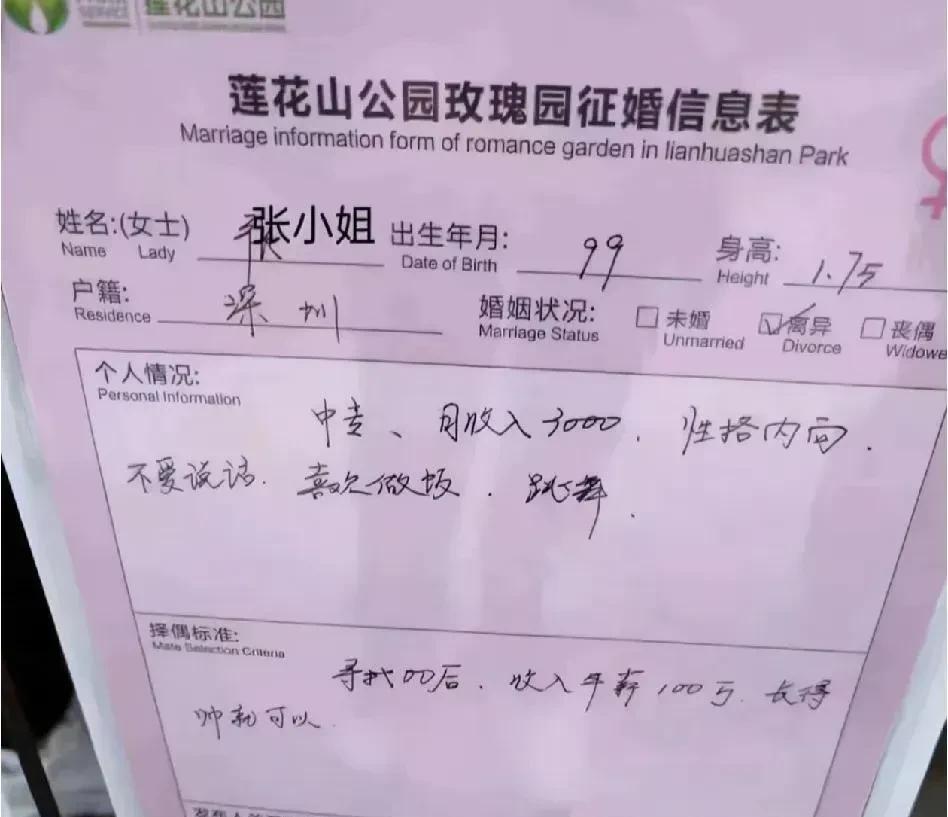 莲花山公园
莲花山公园玫瑰园征婚信息表
Marriage information form of romance garden in lianhuashan Park
姓名:(女士) 张小姐 出生年月: 99 身高: 1.75
Name Lady Date of Birth Height
户籍: 深圳 婚姻状况: 未婚 离异 丧偶
Residence Marriage Status Unmarried Divorce Widowe
个人情况:
Personal Information
中专、月收入3000. 性格内向.
不爱说话. 喜欢做饭. 跳舞.
择偶标准:
Mate Selection Criteria
寻找00后. 收入年薪100万. 长得
帅就可以.